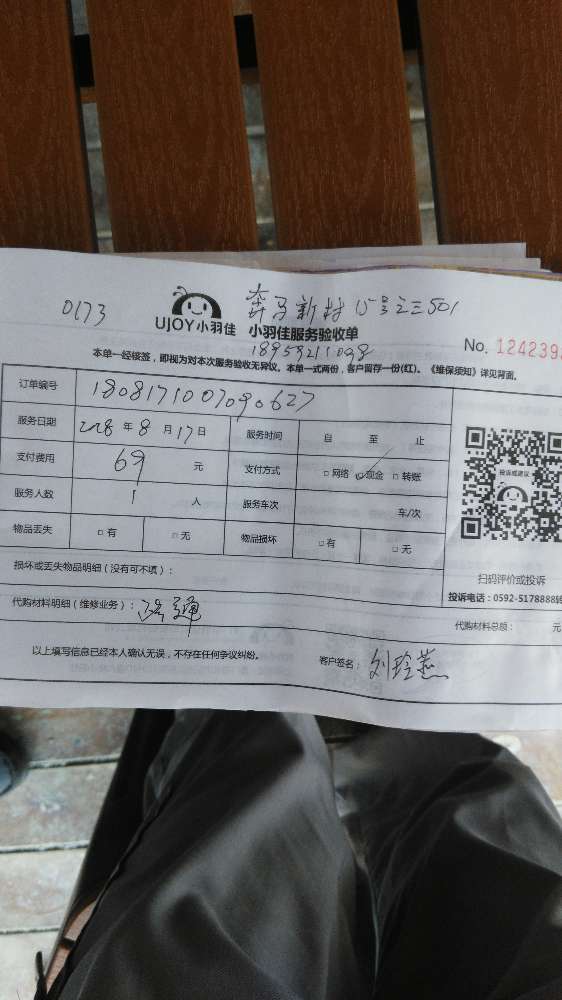 0173
UJOY小羽佳
奔马新村15号之三501
小羽佳服务验收单
18959211098
No. 124239
本单一经核签，即视为对本次服务验收无异议。本单一式两份，客户留存一份(红)。《维保须知》详见背面。
订单编号 1808171007090627
服务日期 2018年8月17日 服务时间 自 至 止
支付费用 69 元 支付方式 □网络 ☑现金 □转账
服务人数 1 人 服务车次 车/次
物品丢失 □有 □无 物品损坏 □有 □无
投诉或建议
扫码评价或投诉
投诉电话：0592-5178888转
损坏或丢失物品明细（没有可不填）：
代购材料明细（维修业务）：疏通
代购材料总额： 元
以上填写信息已经本人确认无误，不存在任何争议纠纷。
客户签名：刘玲燕